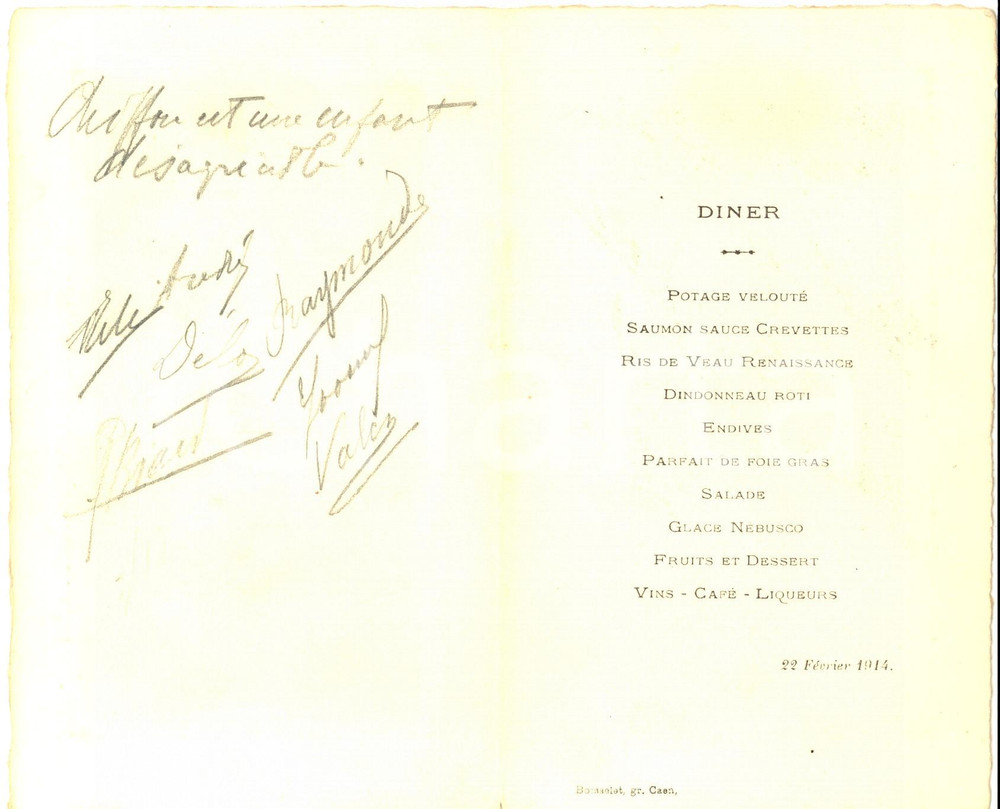 Chiffon est une enfant
désagréable.
André
Raymonde
Yvonne
Valéry
DINER
POTAGE VELOUTÉ
SAUMON SAUCE CREVETTES
RIS DE VEAU RENAISSANCE
DINDONNEAU ROTI
ENDIVES
PARFAIT DE FOIE GRAS
SALADE
GLACE NEBUSCO
FRUITS ET DESSERT
VINS - CAFÉ - LIQUEURS
22 Février 1914.
gr. Caen,